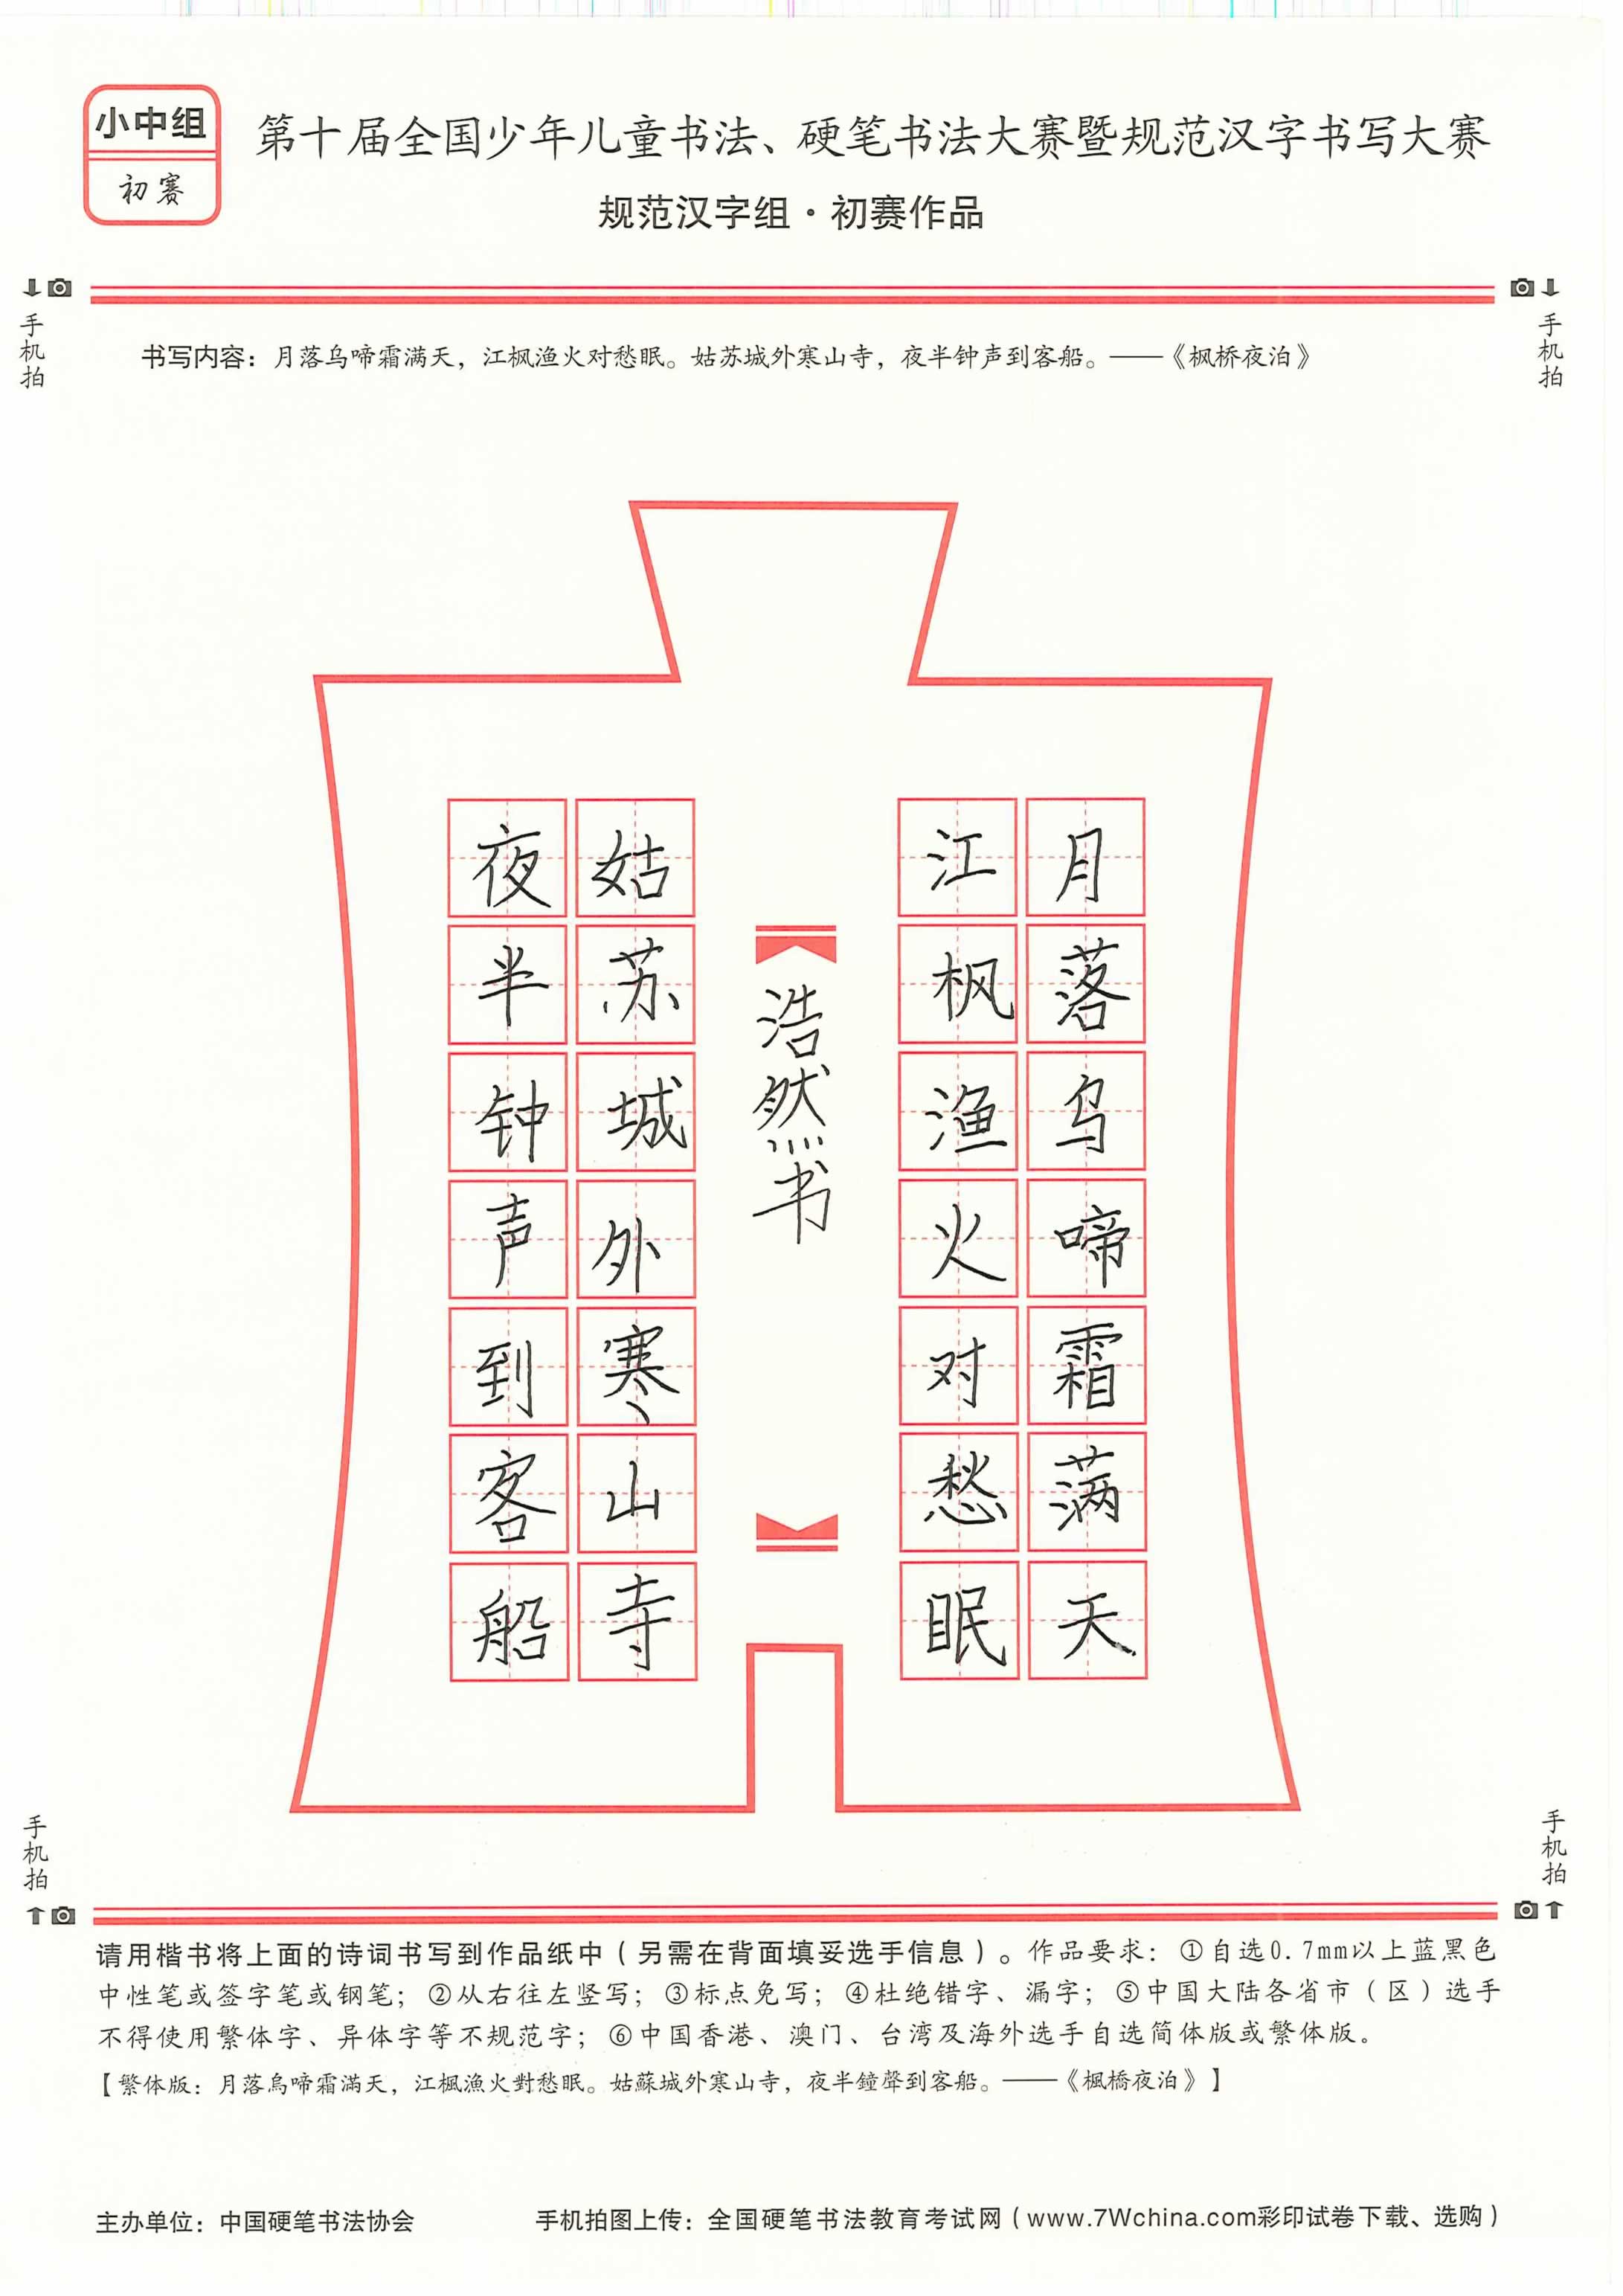 小中组
初赛
第十届全国少年儿童书法、硬笔书法大赛暨规范汉字书写大赛
规范汉字组·初赛作品
手机拍
手机拍
书写内容：月落乌啼霜满天，江枫渔火对愁眠。姑苏城外寒山寺，夜半钟声到客船。——《枫桥夜泊》
月落乌啼霜满天
江枫渔火对愁眠
浩然书
姑苏城外寒山寺
夜半钟声到客船
手机拍
手机拍
请用楷书将上面的诗词书写到作品纸中（另需在背面填妥选手信息）。作品要求：①自选0.7mm以上蓝黑色
中性笔或签字笔或钢笔；②从右往左竖写；③标点免写；④杜绝错字、漏字；⑤中国大陆各省市（区）选手
不得使用繁体字、异体字等不规范字；⑥中国香港、澳门、台湾及海外选手自选简体版或繁体版。
【繁体版：月落烏啼霜滿天，江楓漁火對愁眠。姑蘇城外寒山寺，夜半鐘聲到客船。——《楓橋夜泊》】
主办单位：中国硬笔书法协会
手机拍图上传：全国硬笔书法教育考试网（www.7Wchina.com彩印试卷下载、选购）